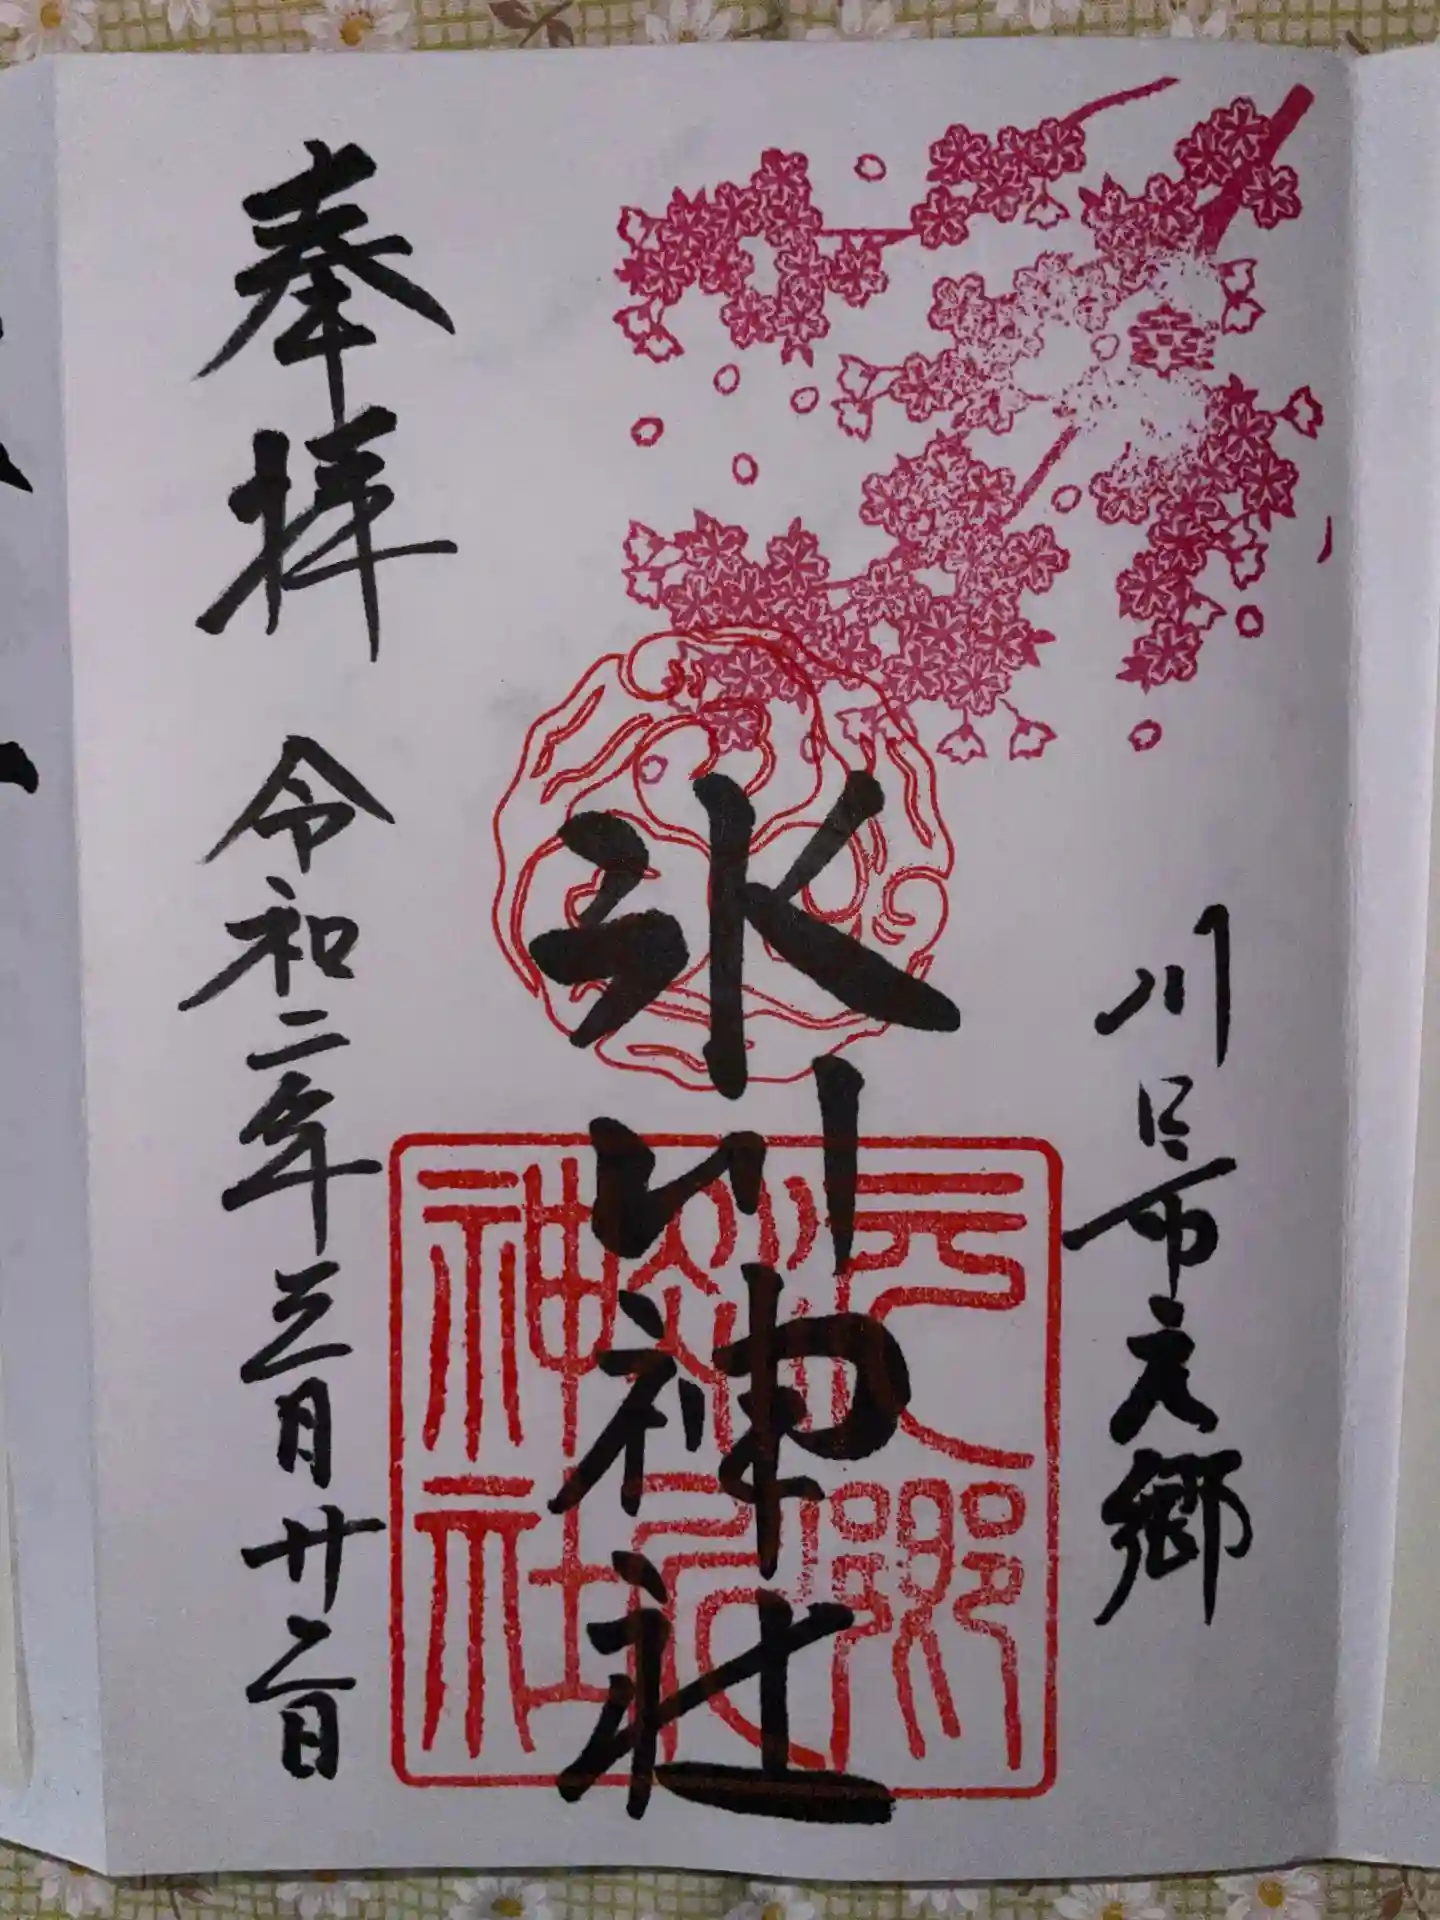 川口市元郷
氷川神社
元郷氷川神社
奉拝
令和二年三月廿二日